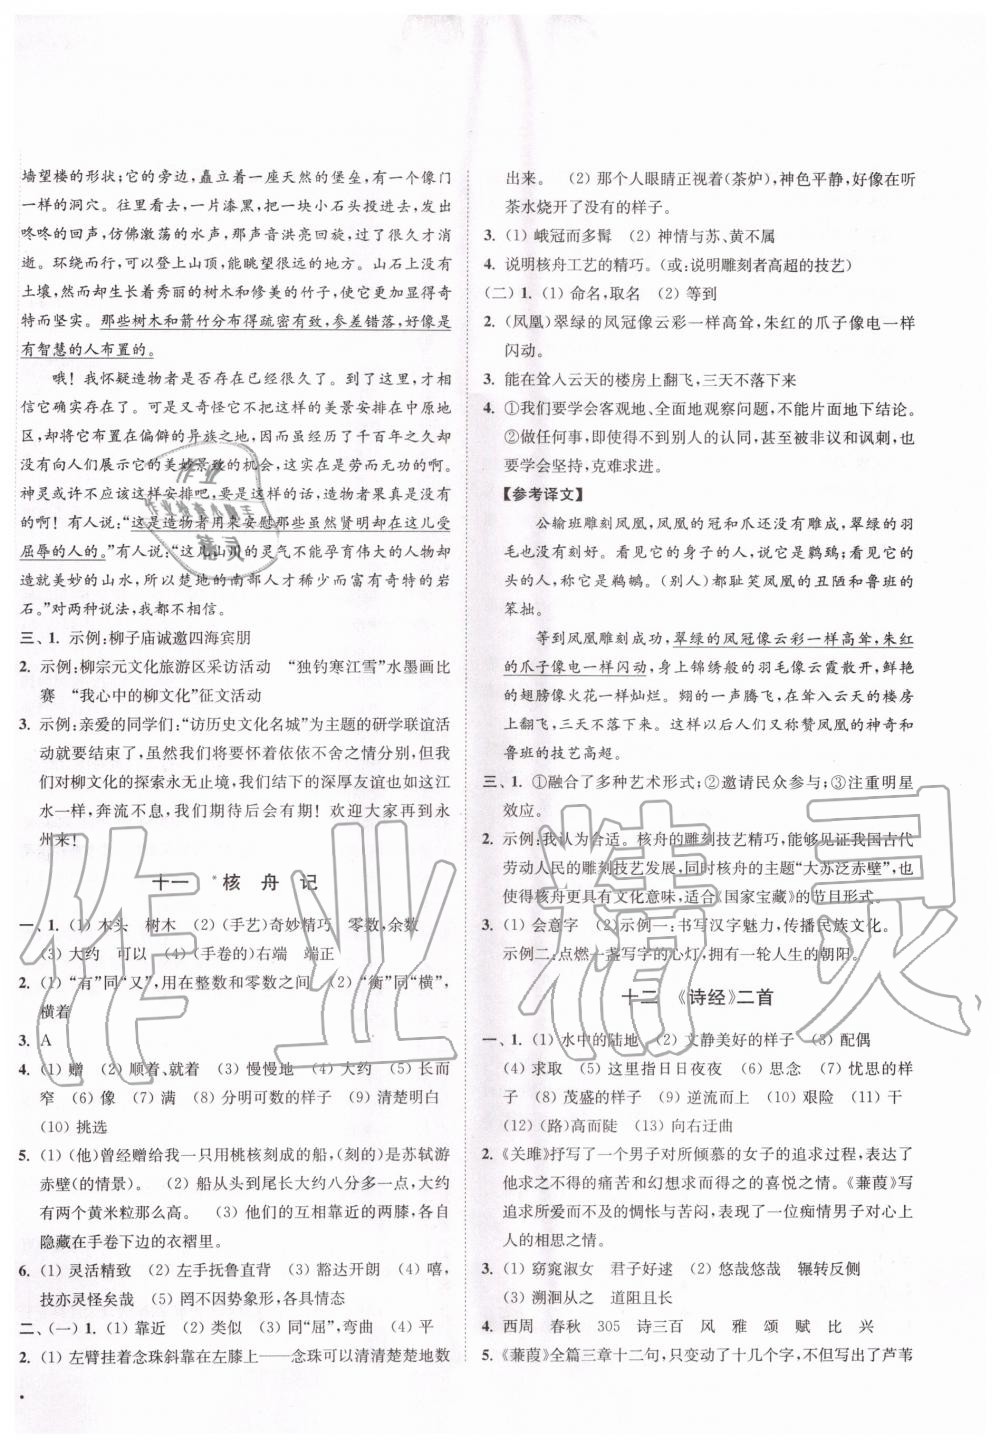 墙望楼的形状;它的旁边,矗立着一座天然的堡垒,共有一个像门
一样的洞穴。往里看去,一片漆黑,把一块小石头投进去,发出
咚咚的回声,仿佛激荡的水声,那声音洪亮回旋,过了很久才消
逝。环绕而行,可以登上山顶,能眺望很远的地方。山石上没有
土壤,然而却生长着秀丽的树木和修美的竹子,使它更加显得奇
特而坚实。那些树木和箭竹分布得疏密有致,参差错落,好像是
有智慧的人布置的。
哦!我怀疑造物者是否存在已经很久了。到了这里,才相
信它确实存在了。可是又奇怪它不把这样的美景安排在中原地
区,却将它布置在偏僻的异族之地,因而虽经历了千百年之久却
没有向人们展示它的美妙景致的机会,这简直是劳而无功的啊。
神灵或许不应该这样安排吧,要是这样,那么造物者果真是没有
的啊!有人说:“这是造物者用来安慰那些虽然贤明却在这儿受
屈辱的人的。”有人说:“这儿山川的灵气不能孕育伟大的人物却
造就美妙的山水,所以楚地的南部人才少而多有奇特的岩
石。”对两种说法,我都不相信。
三、1. 示例:柳子庙诚邀四海宾朋
2. 示例:柳宗元文化旅游区采访活动 “独钓寒江雪”水墨画比
赛 “我心中的柳文化”征文活动
3. 示例:亲爱的同学们:“访历史文化名城”为主题的研学联谊活
动就要结束了,虽然我们将要怀着依依不舍之情分别,但我
们对柳文化的探索永无止境,我们结下的深厚友谊也如这江
水一样,奔流不息,我们期待后会有期!欢迎大家再到永
州来!
十一 *核 舟 记
一、1. (1) 木头 树木 (2) (手艺)奇妙精巧 零数,余数
(3) 大约 可以 (4) (手卷的)右端 端正
2. (1) “有”同“又”,用在整数和零数之间 (2) “衡”同“横”,
横着
3. A
4. (1) 赠 (2) 顺着、就着 (3) 慢慢地 (4) 大约 (5) 长而
窄 (6) 像 (7) 满 (8) 分明可数的样子 (9) 清楚明白
(10) 挑选
5. (1) (他)曾经赠给我一只用桃核刻成的船,(刻的)是苏轼游
赤壁(的情景)。 (2) 船从头到尾长大约八分多一点,大约
有两个黄米粒那么高。 (3) 他们的互相靠近的两膝,各自
隐藏在手卷下边的衣褶里。
6. (1) 灵活精致 (2) 左手抚鲁直背 (3) 豁达开朗 (4) 嘻,
技亦灵怪矣哉 (5) 罔不因势象形,各具情态
二、(一) 1. (1) 靠近 (2) 类似 (3) 同“屈”,弯曲 (4) 平
2. (1) 左臂挂着念珠斜靠在左膝上——念珠可以清清楚楚地数
出来。 (2) 那个人眼睛正视着(茶炉),神色平静,好像在听
茶水烧开了没有的样子。
3. (1) 峨冠而多髯 (2) 神情与苏、黄不属
4. 说明核舟工艺的精巧。(或:说明雕刻者高超的技艺)
(二) 1. (1) 命名,取名 (2) 等到
2. (凤凰)翠绿的凤冠像云彩一样高耸,朱红的爪子像电一样
闪动。
3. 能在耸入云天的楼房上翻飞,三天不落下来
4. ①我们要学会客观地、全面地观察问题,不能片面地下结论。
②做任何事,即使得不到别人的认同,甚至被非议和讽刺,也
要学会坚持,克难求进。
【参考译文】
公输班雕刻凤凰,凤凰的冠和爪还没有雕成,翠绿的羽
毛也没有刻好。看见它的身子的人,说它是鹳鹅;看见它的
头的人,称它是鹈鹕。(别人)都耻笑凤凰的丑陋和鲁班的
笨拙。
等到凤凰雕刻成功,翠绿的凤冠像云彩一样高耸,朱红
的爪子像电一样闪动,身上锦绣般的羽毛像云霞散开,鲜艳
的翅膀像火花一样灿烂。翙的一声腾飞,在耸入云天的楼房
上翻飞,三天不落下来。这样以后人们又称赞凤凰的神奇和
鲁班的技艺高超。
三、1. ①融合了多种艺术形式;②邀请民众参与;③注重明星
效应。
2. 示例:我认为合适。核舟的雕刻技艺精巧,能够见证我国古代
劳动人民的雕刻技艺发展,同时核舟的主题“大苏泛赤壁”,也
使得核舟具有文化意味,适合《国家宝藏》的节目形式。
3. (1) 会意字 (2) 示例一:书写汉字魅力,传播民族文化。
示例二:点燃一盏写字的心灯,拥有一轮人生的朝阳。
十二 《诗经》二首
一、1. (1) 水中的陆地 (2) 文静美好的样子 (3) 配偶
(4) 求取 (5) 这里指日日夜夜 (6) 思念 (7) 忧思的样
子 (8) 茂盛的样子 (9) 逆流而上 (10) 艰险 (11) 干
(12) (路)高而陡 (13) 向右迂曲
2. 《关雎》抒写了一个男子对所倾慕的女子的追求,表达了
他求之不得的痛苦和幻想求而得之的喜悦之情。《蒹葭》写
追求所爱而不及的惆怅与苦闷,表现了一位痴情男子对心上
人的相思之情。
3. (1) 窈窕淑女 君子好逑 (2) 悠哉悠哉 辗转反侧
(3) 溯洄从之 道阻且长
4. 西周 春秋 305 诗三百 风 雅 颂 赋 比 兴
5. 《蒹葭》全篇三章十二句,只变动了十几个字,不但写出了芦苇
作业精灵